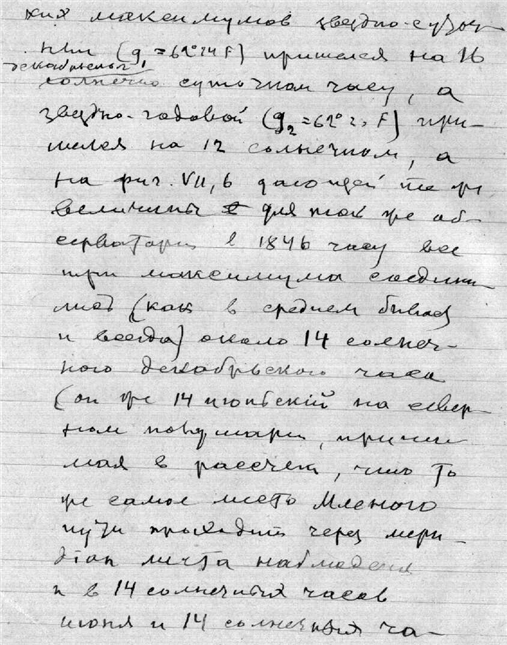 ких максимумов звездно-суточ-
ный (g₁=61°24 F) пришелся на 16
декабрьском
солнечно суточном часу, а
звездно-годовой (g₂=61° F) при-
шелся на 12 солнечном, а
на фиг. VII, 6 дающей те же
величины для той же об-
серватории в 1846 часу все
три максимума соедини-
лись (как в среднем бывает
и всегда) около 14 солнеч-
ного декабрьского часа
(он же 14 июньский на север-
ном полушарии, прини-
мая в рассчет, что то
же самое место Млечного
пути проходит через мери-
диан места наблюдения
и в 14 солнечных часов
июня и 14 солнечных ча-